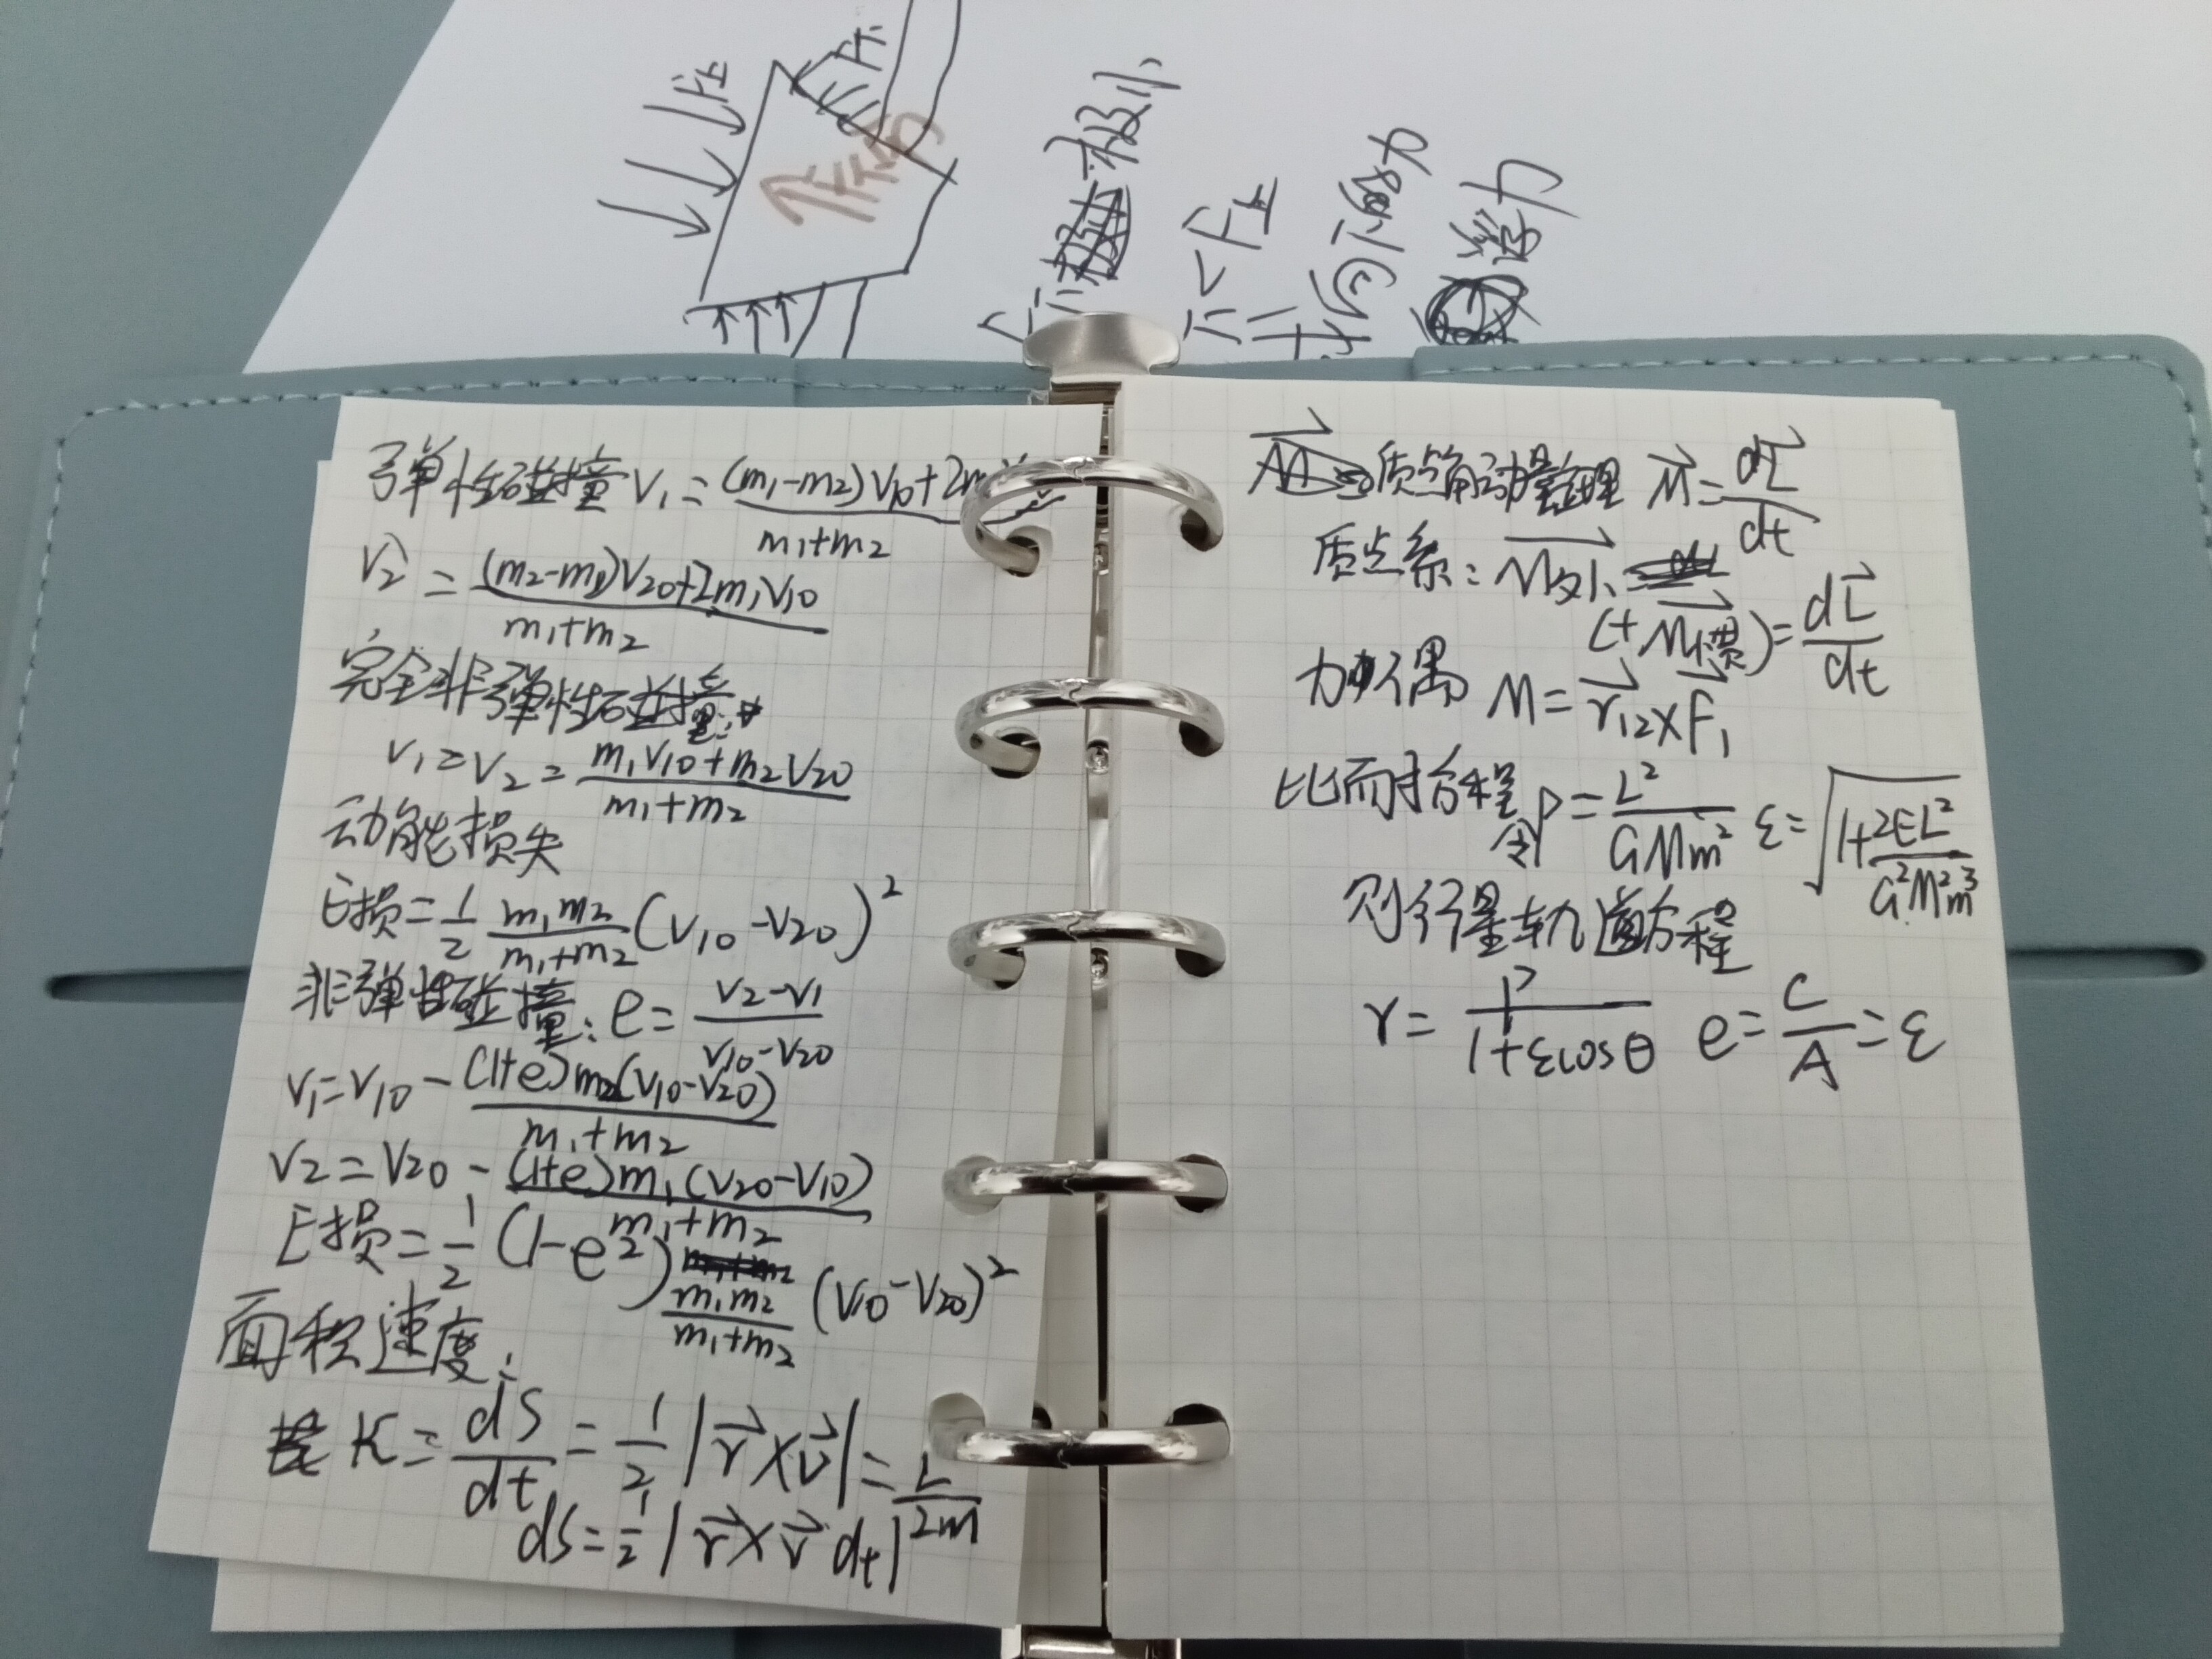 F上
F下
极小
F下<F上
不包含
浮力
弹性碰撞 V₁=((m₁-m₂)V₁₀+2m
m₁+m₂
V₂=((m₂-m₁)V₂₀+2m₁V₁₀)/(m₁+m₂)
完全非弹性碰撞:
V₁=V₂=(m₁V₁₀+m₂V₂₀)/(m₁+m₂)
动能损失
E损=1/2 m₁m₂/(m₁+m₂) (V₁₀-V₂₀)²
非弹性碰撞: e=(V₂-V₁)/(V₁₀-V₂₀)
V₁=V₁₀-(1+e)m₂(V₁₀-V₂₀)/(m₁+m₂)
V₂=V₂₀-(1+e)m₁(V₂₀-V₁₀)/(m₁+m₂)
E损=1/2 (1-e²) m₁m₂/(m₁+m₂) (V₁₀-V₂₀)²
面积速度:
K=dS/dt=1/2|r⃗×v⃗|=L/2m
dS=1/2|r⃗×v⃗dt|
质点角动量定理 M⃗=dL⃗/dt
质点系: M⃗外
(+M⃗惯)=dL⃗/dt
力偶 M=r⃗₁₂×F⃗₁
比耐 程 令P=L²/GMm² ε=√(1+2EL²/G²M²m³)
则行星轨道方程
r=P/(1+εcosθ) e=C/A=ε